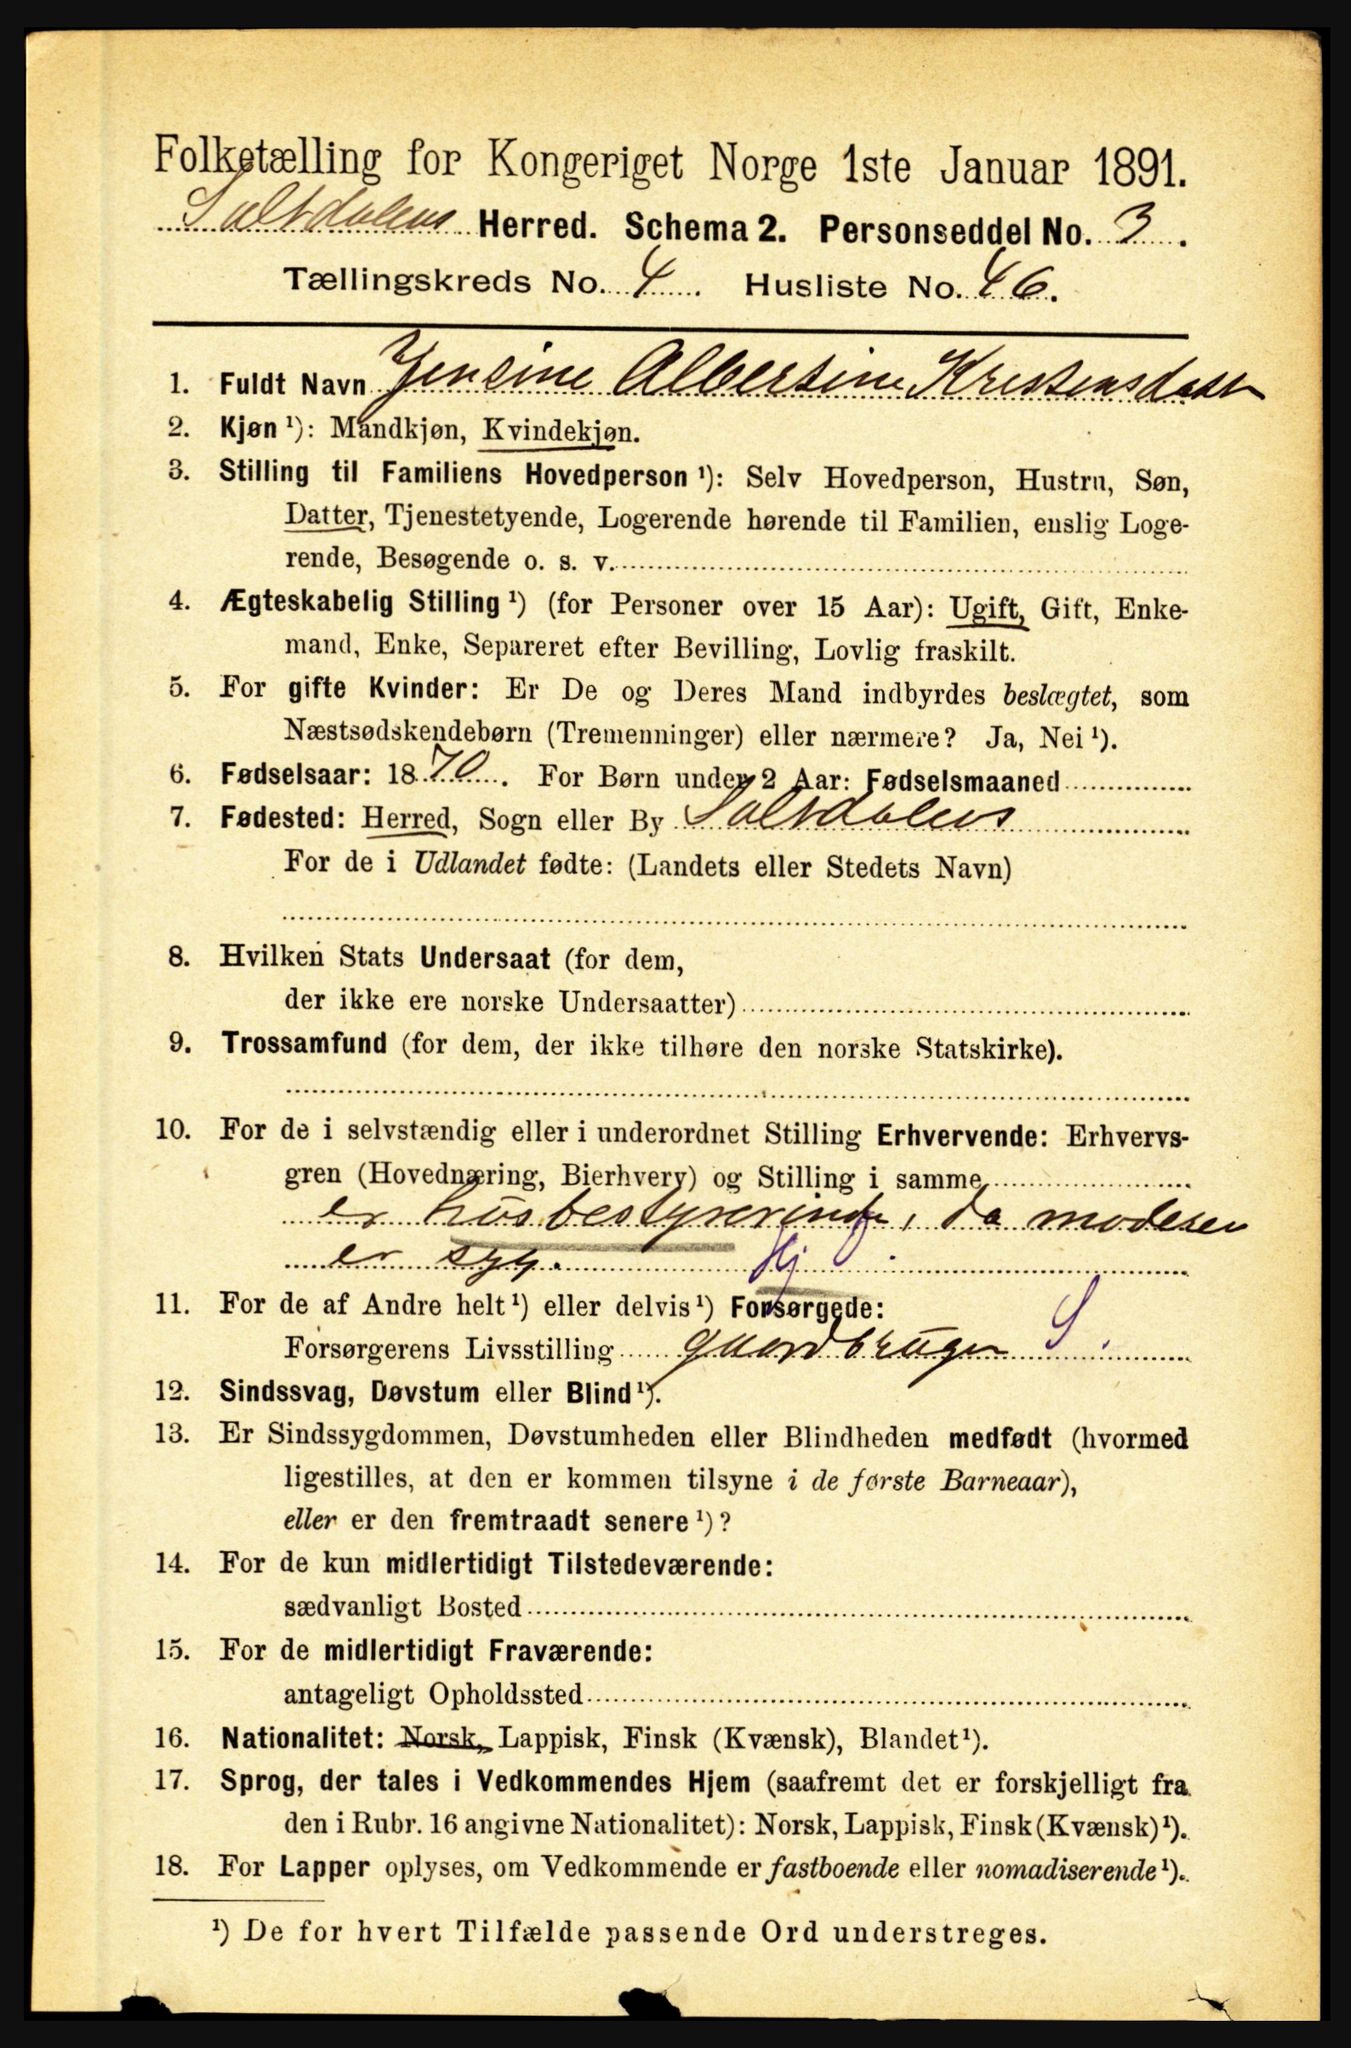 Folketælling for Kongeriget Norge 1ste Januar 1891.
Saltdalens Herred. Schema 2. Personseddel No. 3.
Tællingskreds No. 4. Husliste No. 46.
1. Fuldt Navn Jensine Albertine Kristensdatt
2. Kjøn ¹): Mandkjøn, Kvindekjøn.
3. Stilling til Familiens Hovedperson ¹): Selv Hovedperson, Hustru, Søn,
Datter, Tjenestetyende, Logerende hørende til Familien, enslig Loge-
rende, Besøgende o. s. v.
4. Ægteskabelig Stilling ¹) (for Personer over 15 Aar): Ugift, Gift, Enke-
mand, Enke, Separeret efter Bevilling, Lovlig fraskilt.
5. For gifte Kvinder: Er De og Deres Mand indbyrdes beslægtet, som
Næstsødskendebørn (Tremenninger) eller nærmere? Ja, Nei ¹).
6. Fødselsaar: 1870. For Børn under 2 Aar: Fødselsmaaned
7. Fødested: Herred, Sogn eller By Saltdalens
For de i Udlandet fødte: (Landets eller Stedets Navn)
8. Hvilken Stats Undersaat (for dem,
der ikke ere norske Undersaatter)
9. Trossamfund (for dem, der ikke tilhøre den norske Statskirke).
10. For de i selvstændig eller i underordnet Stilling Erhvervende: Erhvervs-
gren (Hovednæring, Bierhverv) og Stilling i samme
er husbestyrerinde, da moderen
er syg. Hj
11. For de af Andre helt ¹) eller delvis ¹) Forsørgede:
Forsørgerens Livsstilling gaardbruger S.
12. Sindssvag, Døvstum eller Blind ¹).
13. Er Sindssygdommen, Døvstumheden eller Blindheden medfødt (hvormed
ligestilles, at den er kommen tilsyne i de første Barneaar),
eller er den fremtraadt senere ¹)?
14. For de kun midlertidigt Tilstedeværende:
sædvanligt Bosted
15. For de midlertidigt Fraværende:
antageligt Opholdssted
16. Nationalitet: Norsk, Lappisk, Finsk (Kvænsk), Blandet ¹).
17. Sprog, der tales i Vedkommendes Hjem (saafremt det er forskjelligt fra
den i Rubr. 16 angivne Nationalitet): Norsk, Lappisk, Finsk (Kvænsk) ¹).
18. For Lapper oplyses, om Vedkommende er fastboende eller nomadiserende ¹).
¹) De for hvert Tilfælde passende Ord understreges.